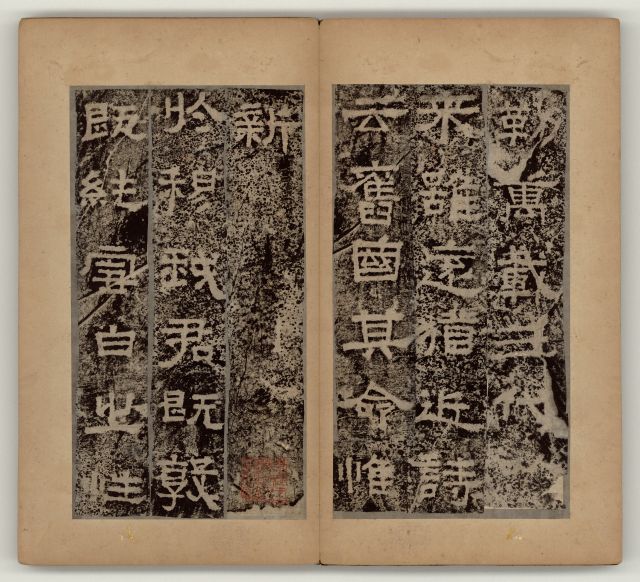 勒萬載三代
来雖遠猶近詩
云舊國其命惟
新
於穆我君既敦
既純雪白之性